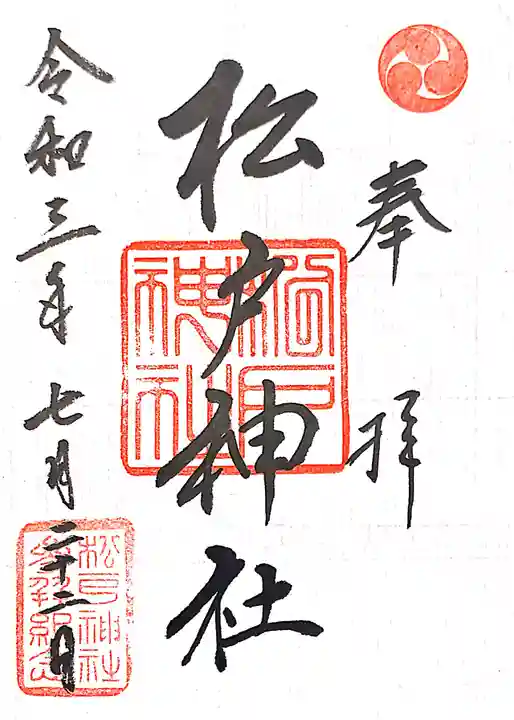 奉拝
松戸神社
松戸神社
令和三年七月二十二日
松戸神社参拝紀念